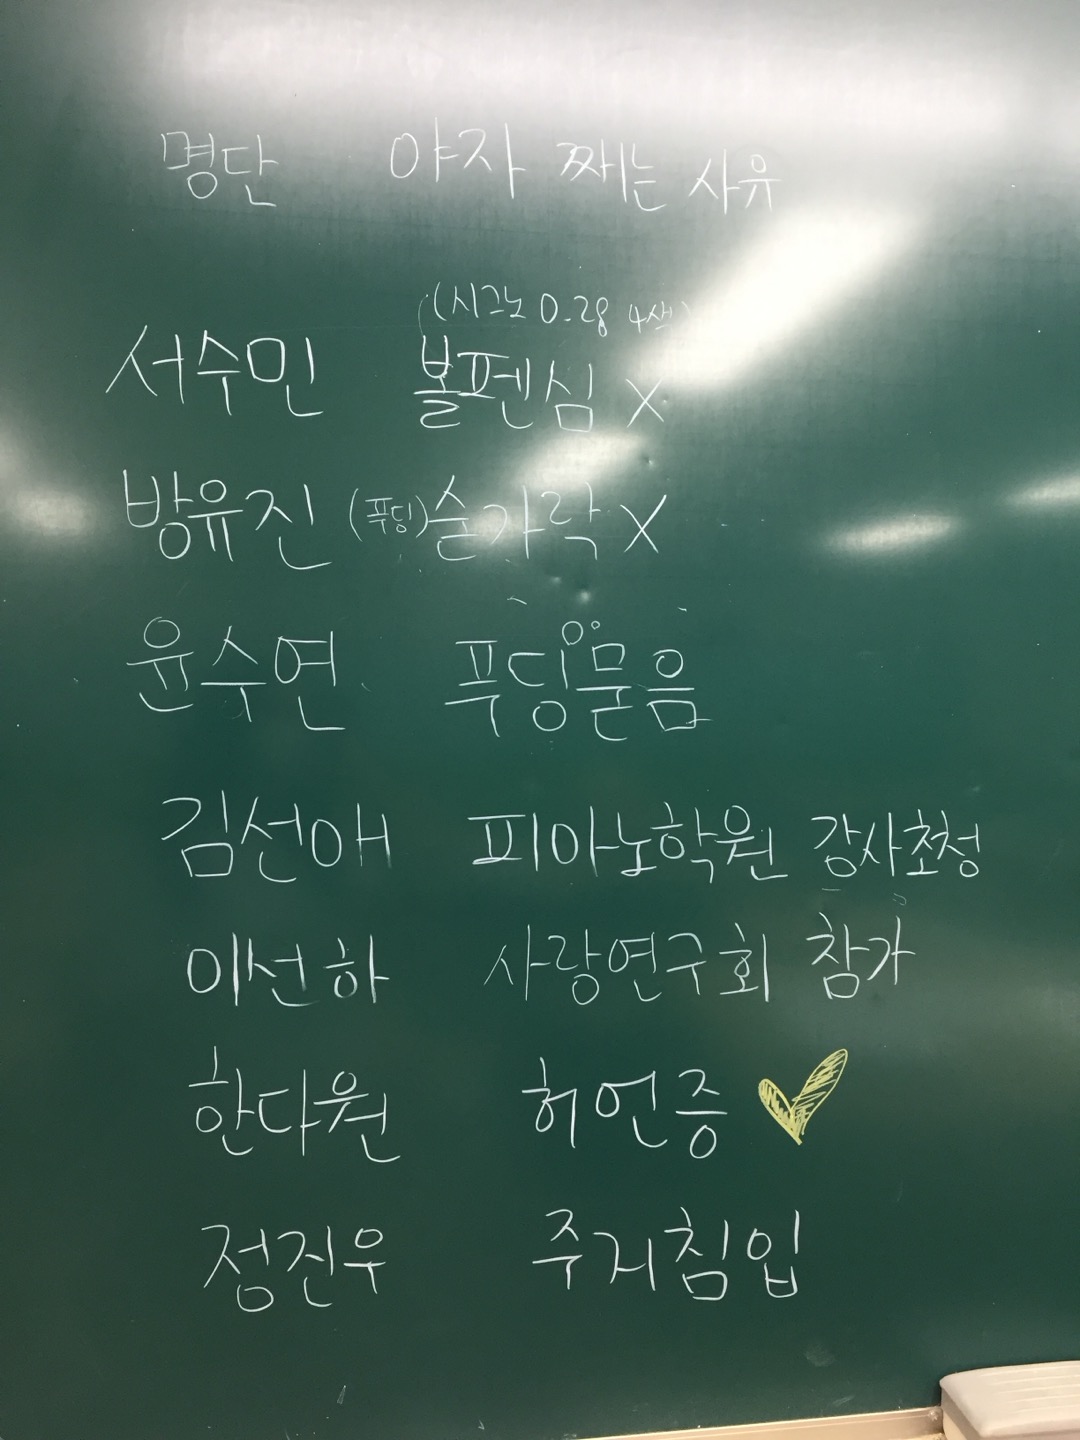 명단 야자 째는 사유
(시그노 0.28 4색)
서수민 볼펜심 X
방유진 (푸딩)숟가락 X
윤수연 푸딩묻음
김선애 피아노학원 강사초청
이선하 사랑연구회 참가
한다원 허언증
정진우 주거침입